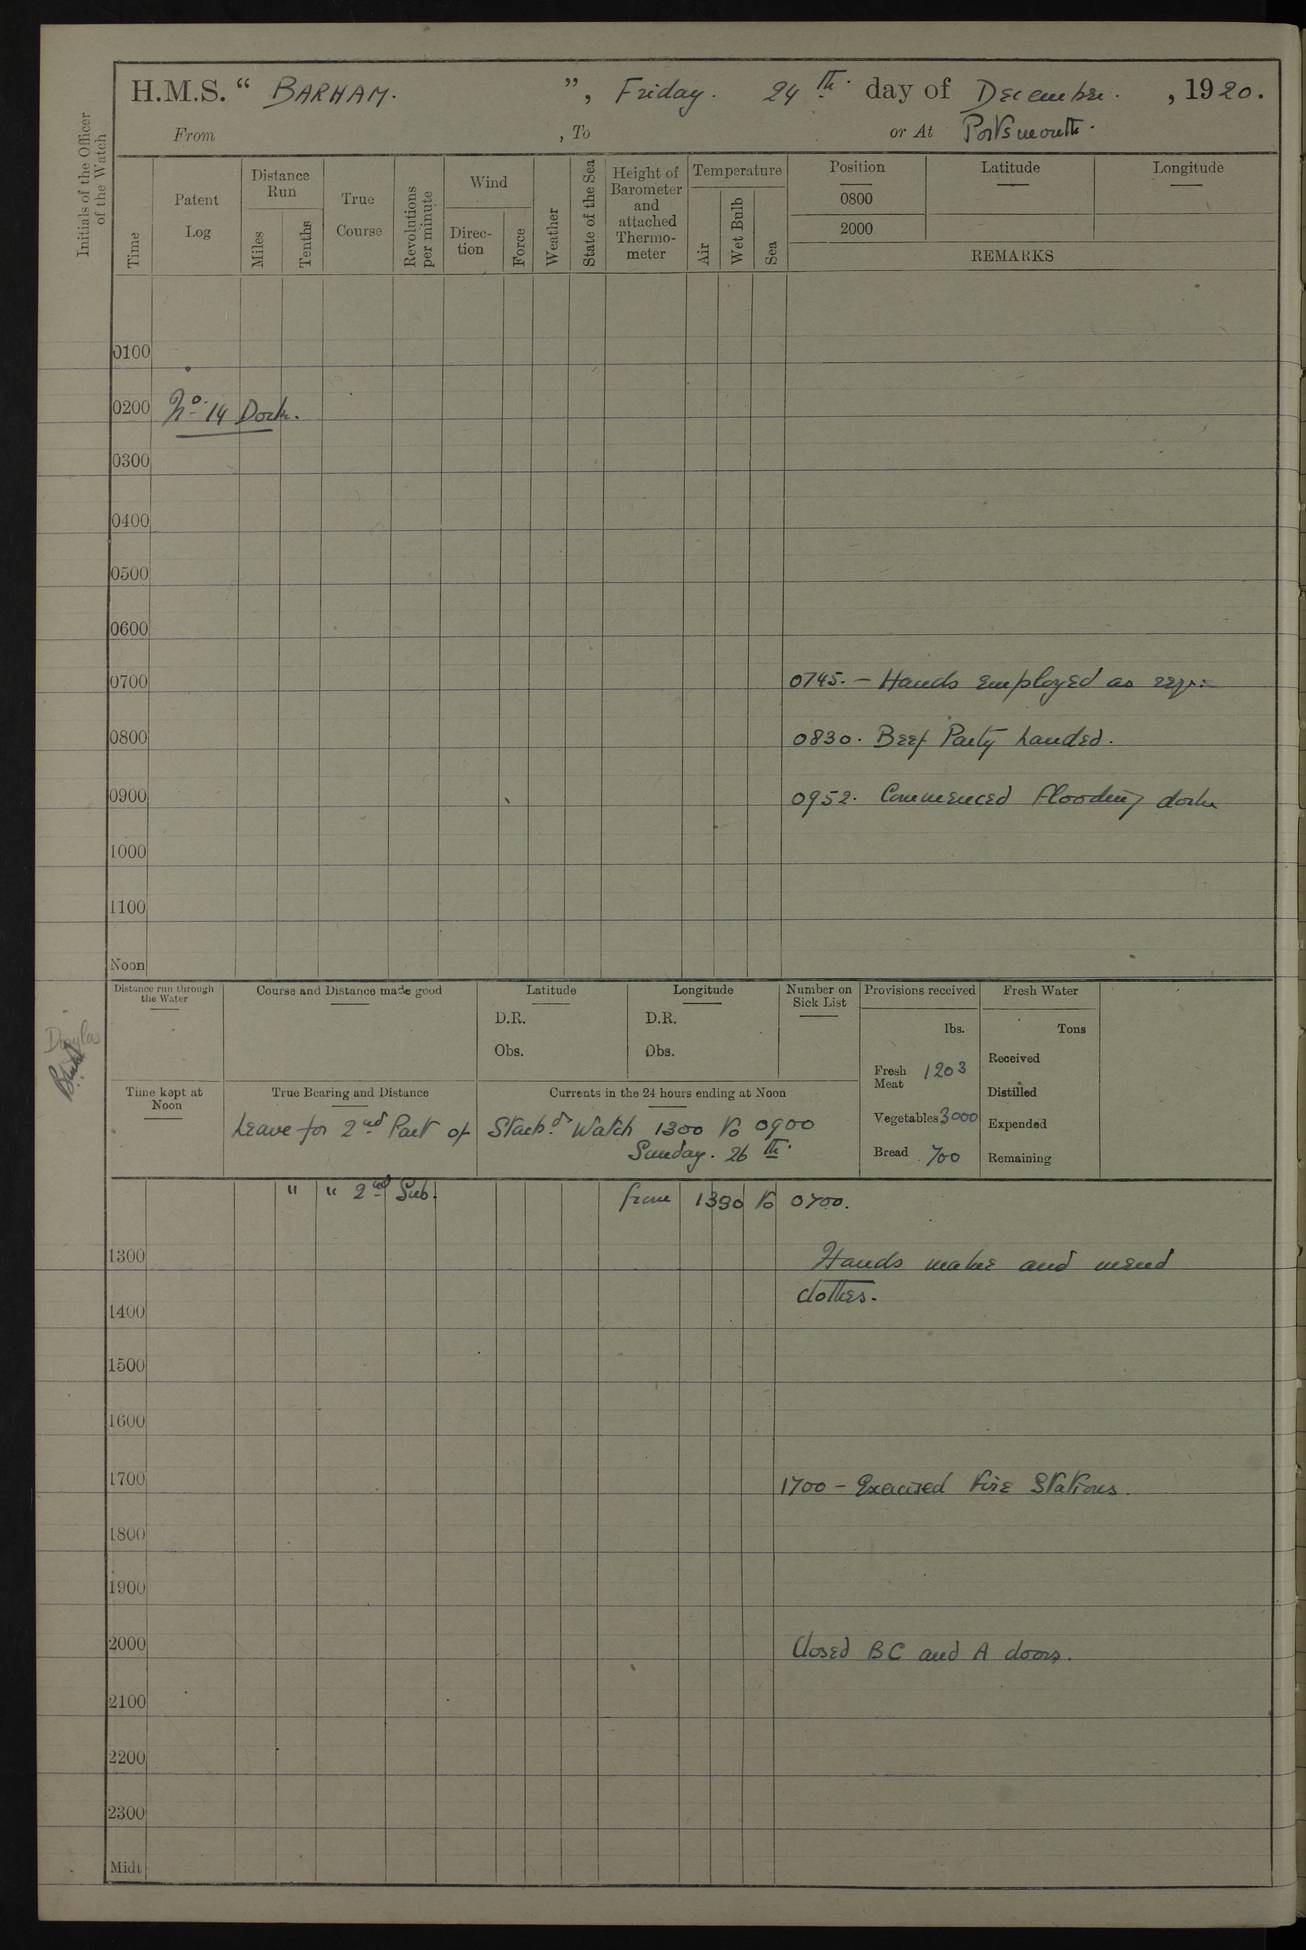 H.M.S. “ BARHAM. ”, Friday. 24th. day of December. , 1920.
From , To or At Portsmouth.
Initials of the Officer of the Watch
Time
Patent Log
Distance Run
Miles
Tenths
True Course
Revolutions per minute
Wind
Direc-tion
Force
Weather
State of the Sea
Height of Barometer and attached Thermo-meter
Temperature
Air
Wet Bulb
Sea
Position
Latitude
Longitude
0800
2000
REMARKS
0100
0200 No. 14 Dock.
0300
0400
0500
0600
0700 0745. — Hands employed as req:
0800 0830. Beef Party landed.
0900 0952. Commenced flooding dock
1000
1100
Noon
Distance run through the Water
Course and Distance made good
Latitude
D.R.
Obs.
Longitude
D.R.
Obs.
Number on Sick List
Provisions received
lbs.
Fresh Meat 1203
Vegetables 3000
Bread 700
Fresh Water
Tons
Received
Distilled
Expended
Remaining
Time kept at Noon
True Bearing and Distance
Currents in the 24 hours ending at Noon
Leave for 2nd Part of Starbd. Watch 1300 to 0900
Sunday. 26th.
" " 2nd Sub. from 1330 to 0700.
1300 Hands make and mend
clothes.
1400
1500
1600
1700 1700 — Exercised Fire Stations.
1800
1900
2000 Closed BC and A doors.
2100
2200
2300
Midt